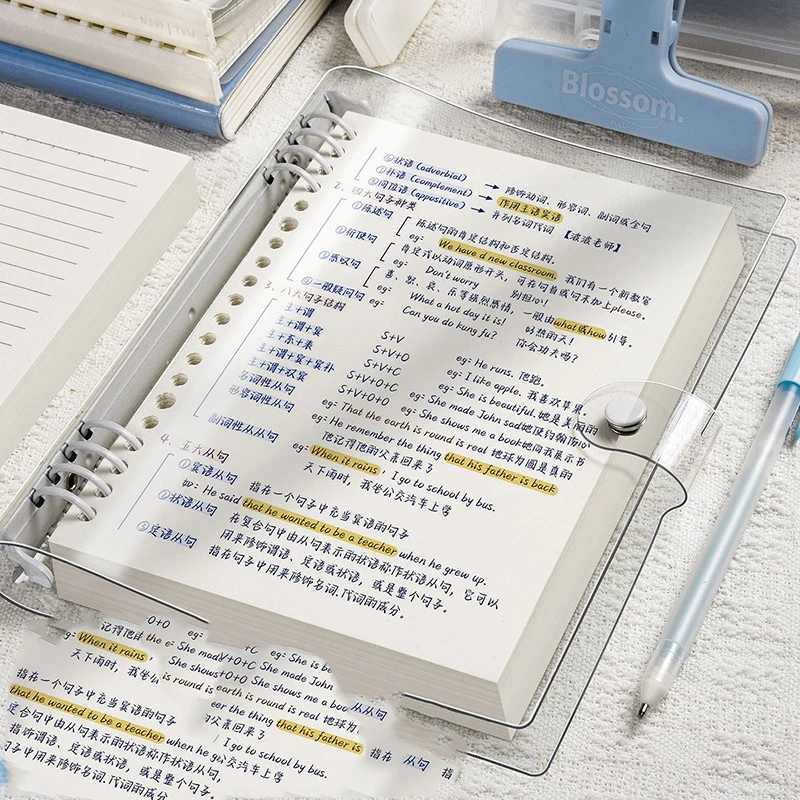 Blossom.
⑥状语 (adverbial) → 修饰动词、形容词、副词或全句
⑦补语 (complement) → 作用主语宾语
⑧同位语 (appositive) → 并列名词代词【波波老师】
2、四大句子种类
①陈述句 陈述句的肯定结构和否定结构.
eg: We have d new classroom. 我们有一个新教室
②祈使句 肯定式以动词原形开头,可在句首或句末加上please.
eg: Don't worry 别担心!
③感叹句 喜、怒、哀、乐等强烈感情, 一般由what或how引导.
eg: What a hot day it is! 好热的天!
④一般疑问句 eg: Can you do kung fu? 你会功夫吗?
3、八大句子结构
主+谓 S+V eg: He runs. 他跑.
主+谓+宾 S+V+O eg: I like apple. 我喜欢苹果.
主+系+表 S+V+C eg: She is beautiful. 她是美丽的
主+谓+宾+宾补 S+V+O+C eg: She made John sad 她使约翰伤心
主+谓+双宾 S+V+O+O eg: She shows me a book 她向我展示书
名词性从句 eg: That the earth is round is real 地球为圆是真的
形容词性从句 eg: He remember the thing that his father is back
他记得他的父亲回来了
副词性从从句 eg: When it rains, I go to school by bus.
天下雨时,我坐公交汽车上学
4、五大从句
①宾语从句 指在一个句子中充当宾语的句子
如: He said that he wanted to be a teacher when he grew up.
②状语从句 在复合句中由从句表示的状语称作状语从句,它可以
用来修饰谓语、定语或状语,或是整个句子.
③定语从句 指在句子中用来修饰名词.代词的成分.
O+O eg: +C eg: She is be
记得他 the e: She mad V+O+C She made John
eg: When it rains, She shows +O+O She shows me a boo 从从句
天下雨时,我坐 is round is earth is round is real 地球为
指在一个句子中充当宾语的句子 er the thing that his father is 指在 从句 指
that he wanted to be a teacher when he g 父亲回来了
定合句中由从句表示的状语称作状语从句, I go to school by bus.
指饰谓语、定语或状语,或是整个句子. 公交汽车上学
句子中用来修饰名词.代词的成分